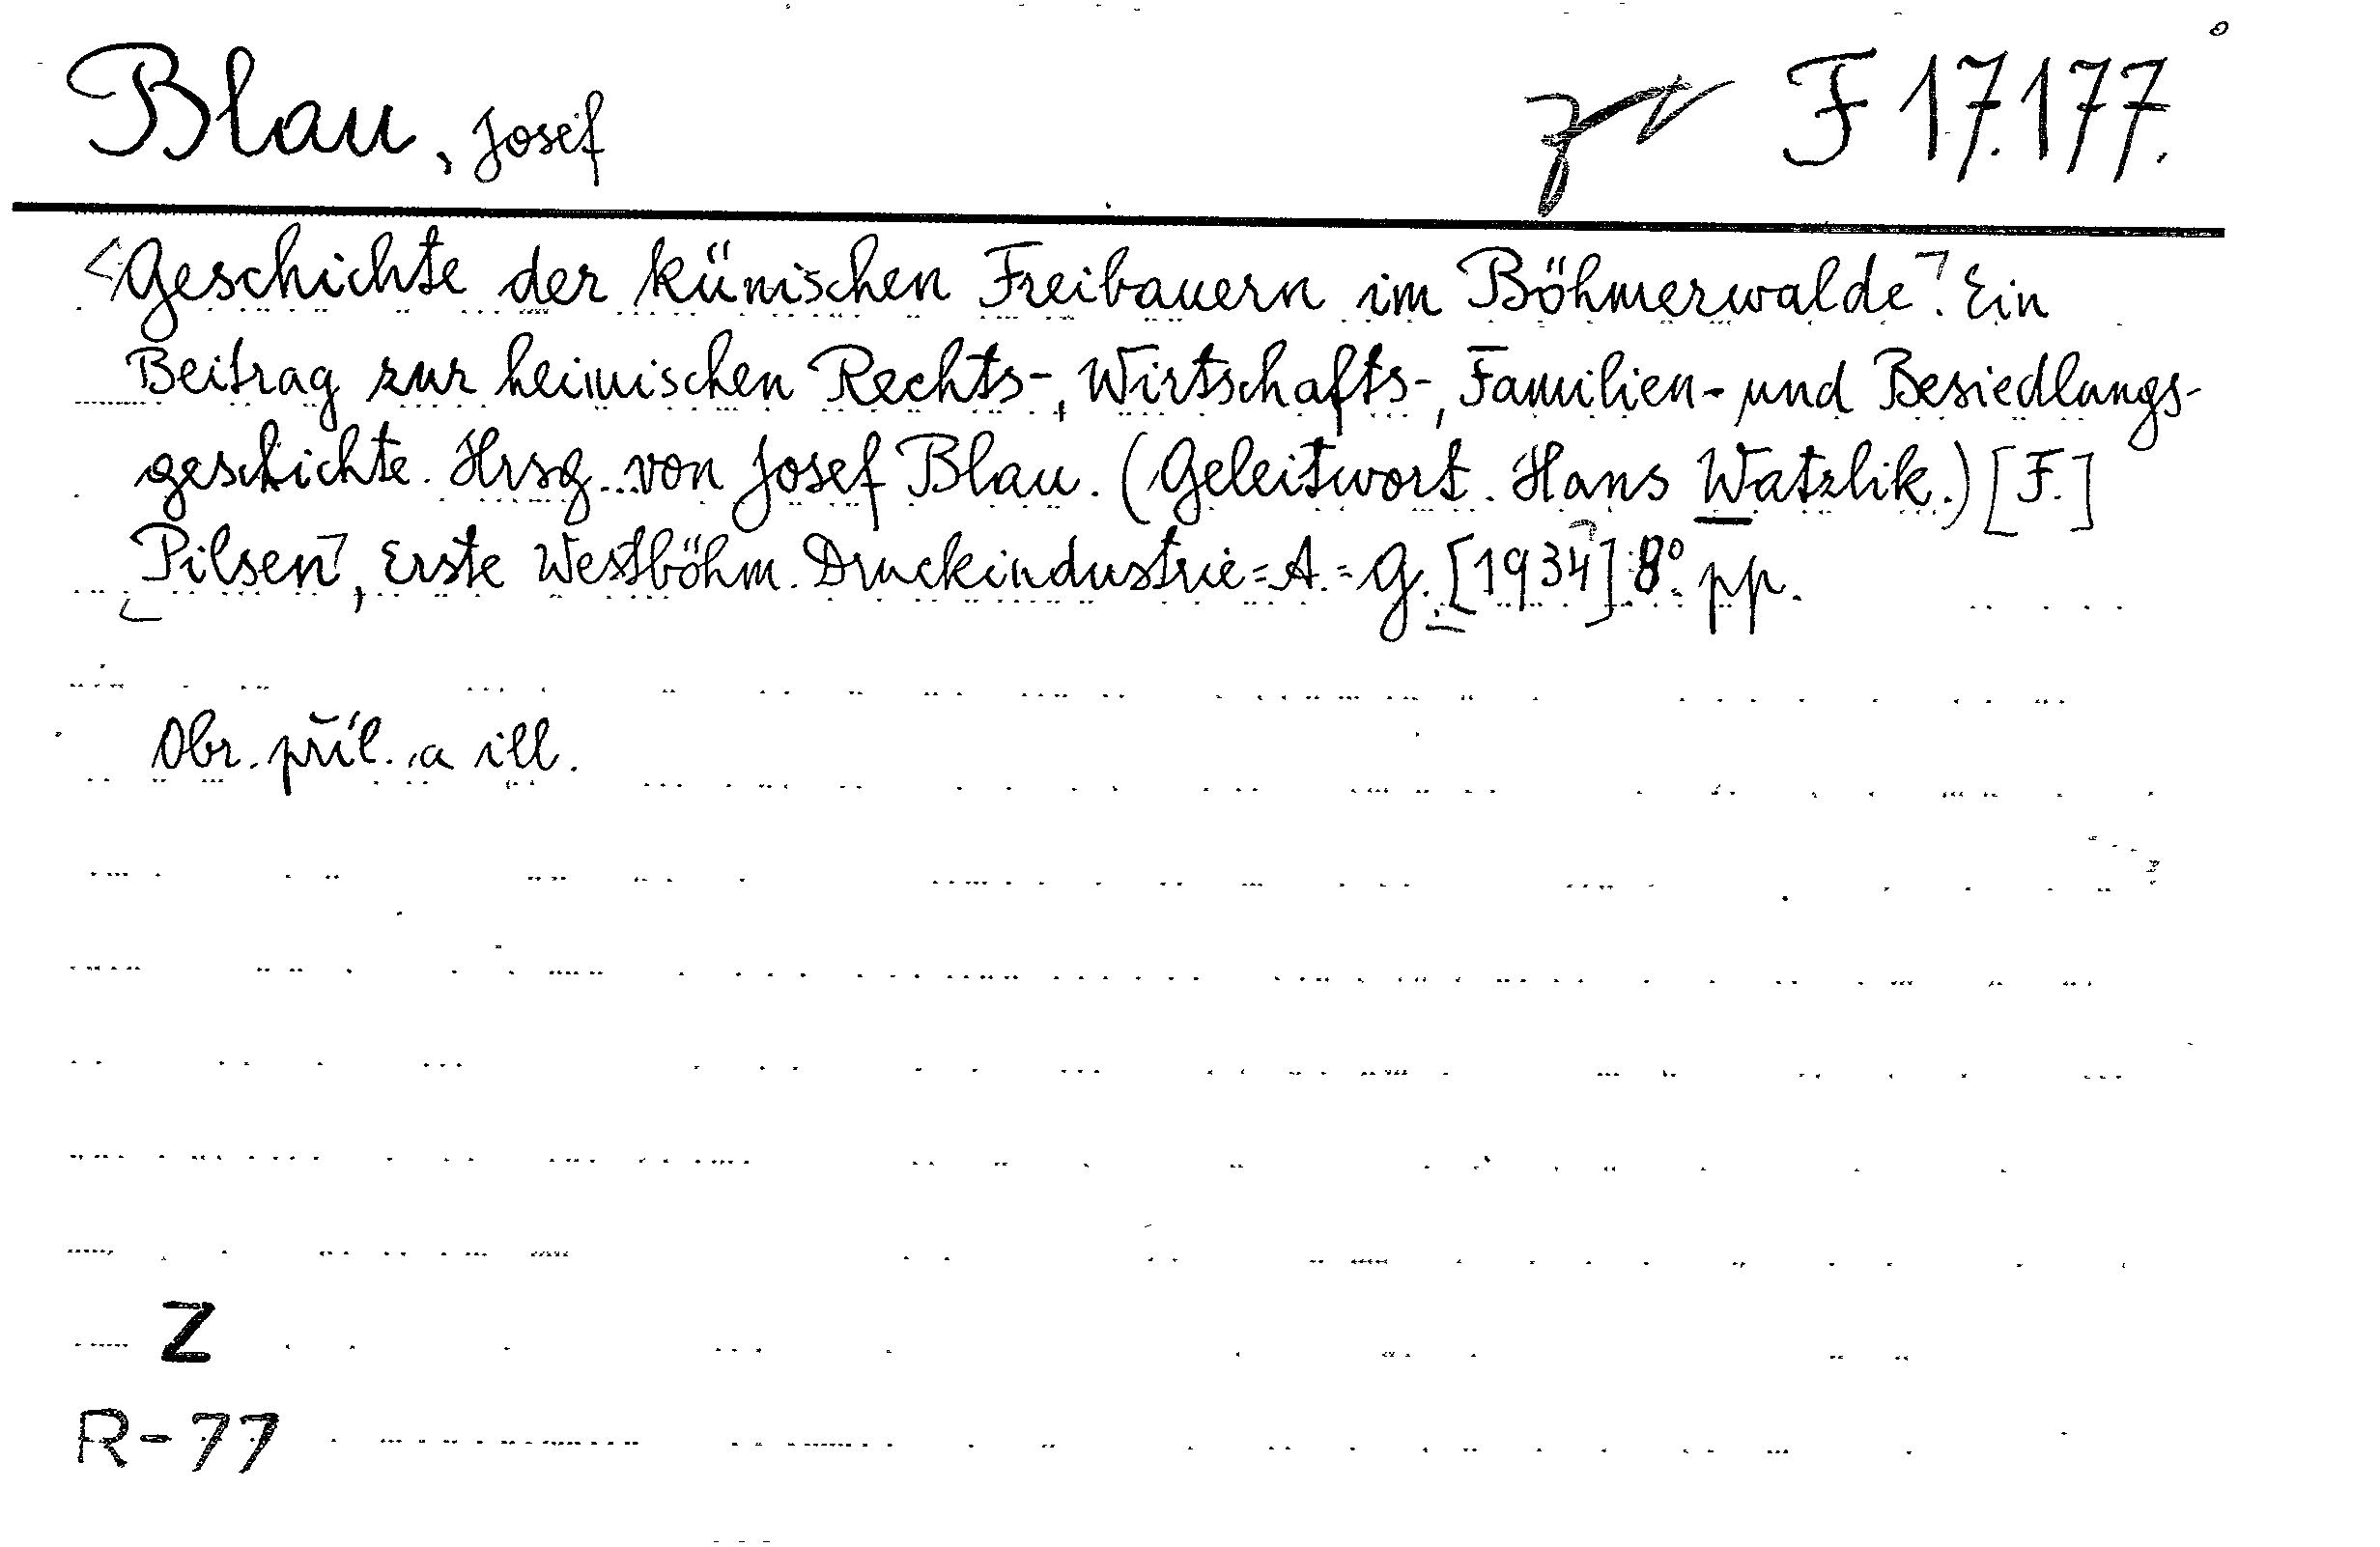 Blau, Josef F 17.177.
Geschichte der künischen Freibauern im Böhmerwalde. Ein
Beitrag zur heimischen Rechts-, Wirtschafts-, Familien- und Besiedlungs-
geschichte. Hrsg. von Josef Blau. (Geleitwort. Hans Watzlik.) [F.]
Pilsen, Erste Westböhm. Druckindustrie=A.=G. [1934] 8° pp.
Obr. příl. a ill.
Z
R-77